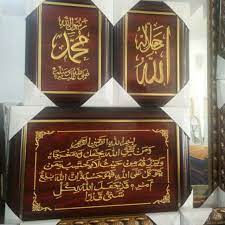 جل جلاله
الله
رسول الله
محمد
صلى الله عليه وسلم
بسم الله الرحمن الرحيم
ومن يتق الله يجعل له مخرجا
ويرزقه من حيث لا يحتسب ومن
يتوكل على الله فهو حسبه إن الله بلغ
أمره قد جعل الله لكل
شيء قدرا